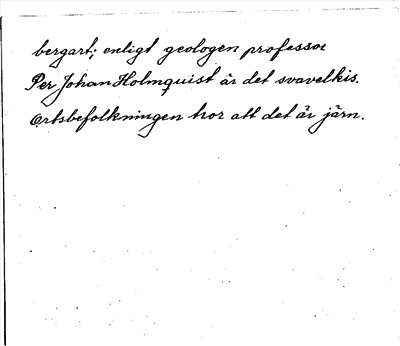 bergart; enligt geologen professor
Per Johan Holmquist är det svavelkis.
Ortsbefolkningen tror att det är järn.